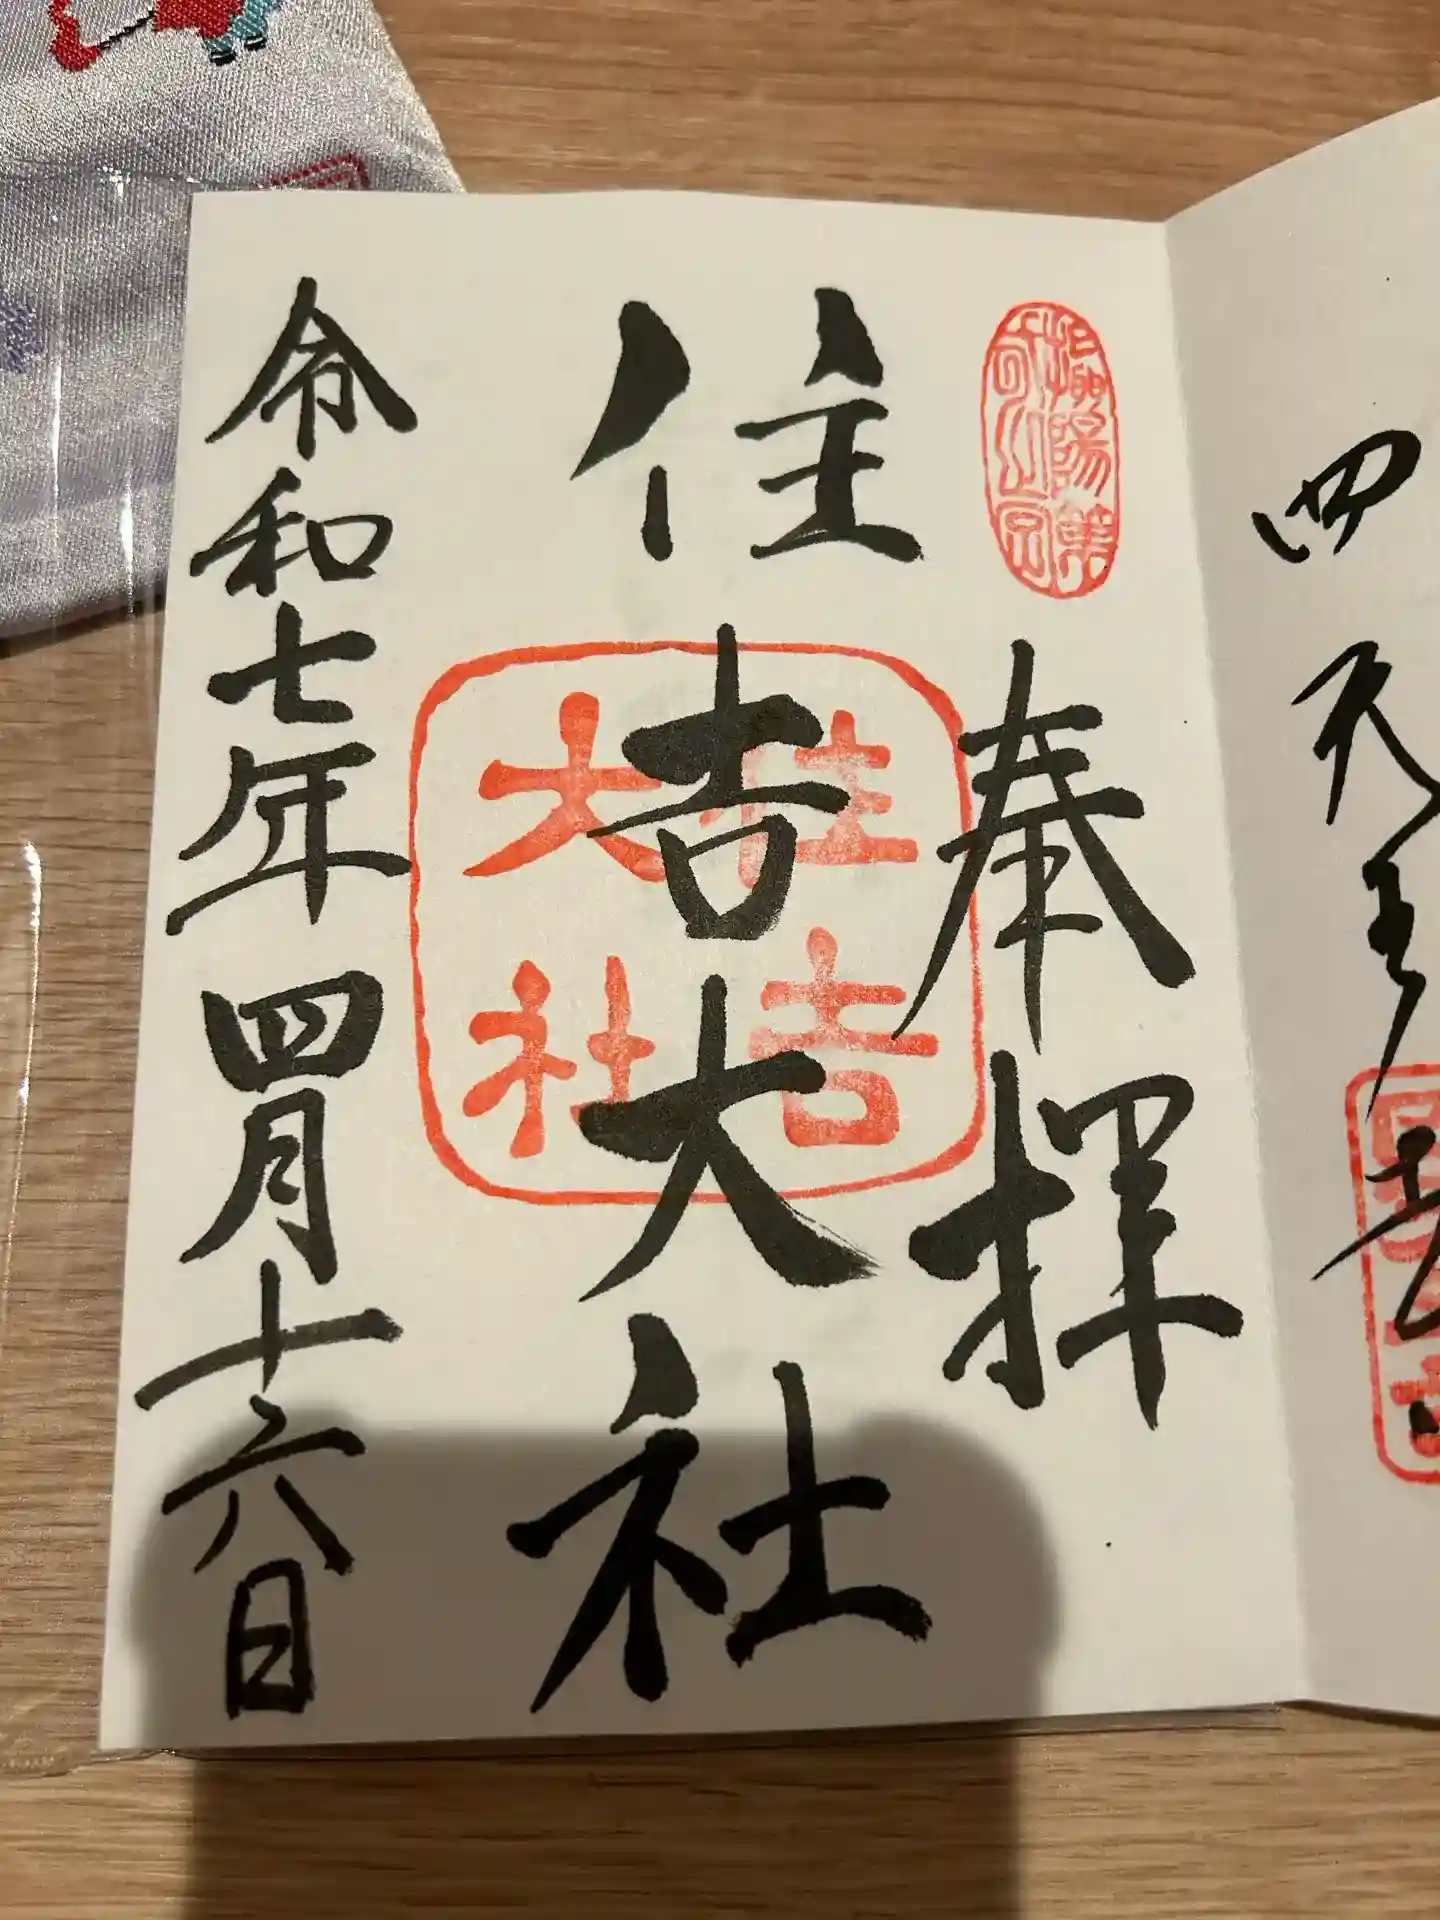 奉拝
住吉大社
住吉
大社
令和七年四月十六日
四天王